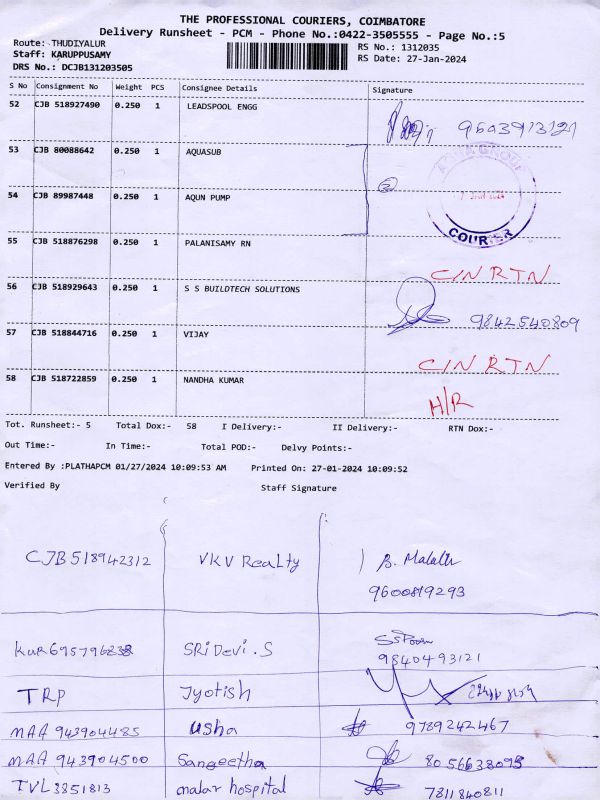 THE PROFESSIONAL COURIERS, COIMBATORE
Delivery Runsheet - PCM - Phone No.:0422-3505555 - Page No.:5
Route: THUDIYALUR
Staff: KARUPPUSAMY
DRS No.: DCJB131203505
RS No.: 1312035
RS Date: 27-Jan-2024
S No Consignment No Weight PCS Consignee Details Signature
52 CJB 518927490 0.250 1 LEADSPOOL ENGG
9603913121
53 CJB 80088642 0.250 1 AQUASUB
54 CJB 89987448 0.250 1 AQUN PUMP
COURIER
55 CJB 518876298 0.250 1 PALANISAMY RN
C/N RTN
56 CJB 518929643 0.250 1 S S BUILDTECH SOLUTIONS
9842540809
57 CJB 518844716 0.250 1 VIJAY
C/N RTN
58 CJB 518722859 0.250 1 NANDHA KUMAR
H/R
Tot. Runsheet:- 5 Total Dox:- 58 I Delivery:- II Delivery:- RTN Dox:-
Out Time:- In Time:- Total POD:- Delvy Points:-
Entered By :PLATHAPCM 01/27/2024 10:09:53 AM Printed On: 27-01-2024 10:09:52
Verified By Staff Signature
CJB 518942312 VKV Realty B. Malathi
9600819293
SRIDEVI.S
9840493121
TRP Jyotish
MAA 943904485 usha 9789242467
MAA 943904500 Sangeetha 8056638095
TVL3851813 malar hospital 7811840811